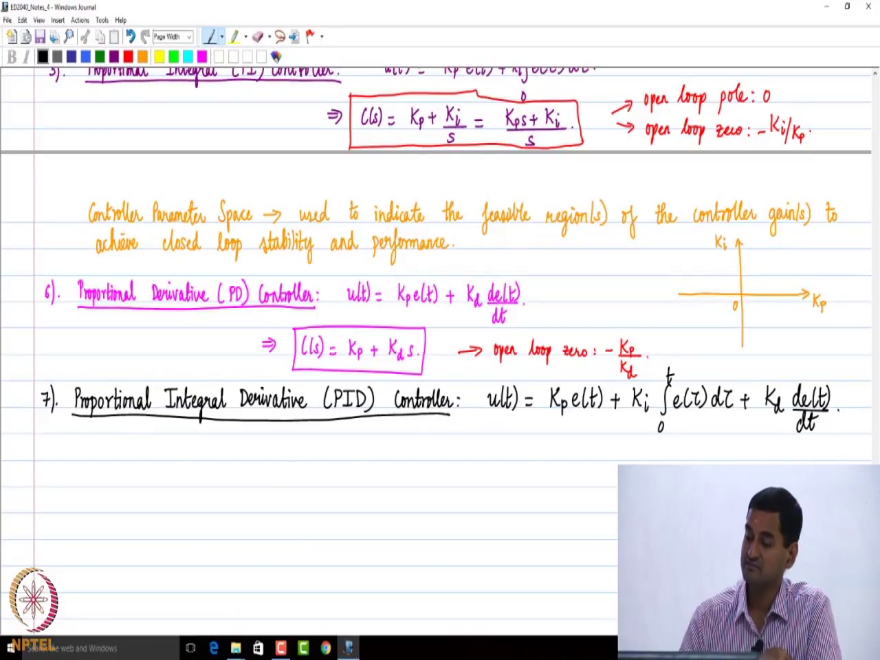 ED2040_Notes_4 - Windows Journal
File Edit View Insert Actions Tools Help
Page Width
B I
5). Proportional Integral (PI) Controller: u(t) = Kp e(t) + Ki ∫ e(τ) dτ.
0
⇒ C(s) = Kp + Ki/s = (Kps + Ki)/s.
→ open loop pole: 0
→ open loop zero: -Ki/Kp.
Controller Parameter Space → used to indicate the feasible region(s) of the controller gain(s) to
achieve closed loop stability and performance.
Ki
0
Kp
6). Proportional Derivative (PD) Controller: u(t) = Kp e(t) + Kd de(t)/dt.
⇒ C(s) = Kp + Kd s. → open loop zero: - Kp/Kd.
7). Proportional Integral Derivative (PID) Controller: u(t) = Kp e(t) + Ki ∫₀ᵗ e(τ) dτ + Kd de(t)/dt.
NPTEL
the web and Windows